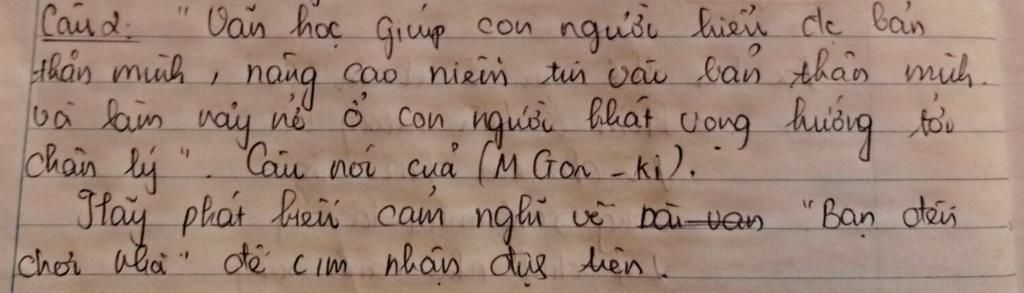 Câu 2: "Văn học giúp con người hiểu đc bản
thân mình, nâng cao niềm tin vào bản thân mình
và làm nảy nở ở con người khát vọng hướng tới
chân lý". Câu nói của (M Gon - ki).
Hãy phát biểu cảm nghĩ về bài văn "Bạn đến
chơi nhà" để nhận trên.